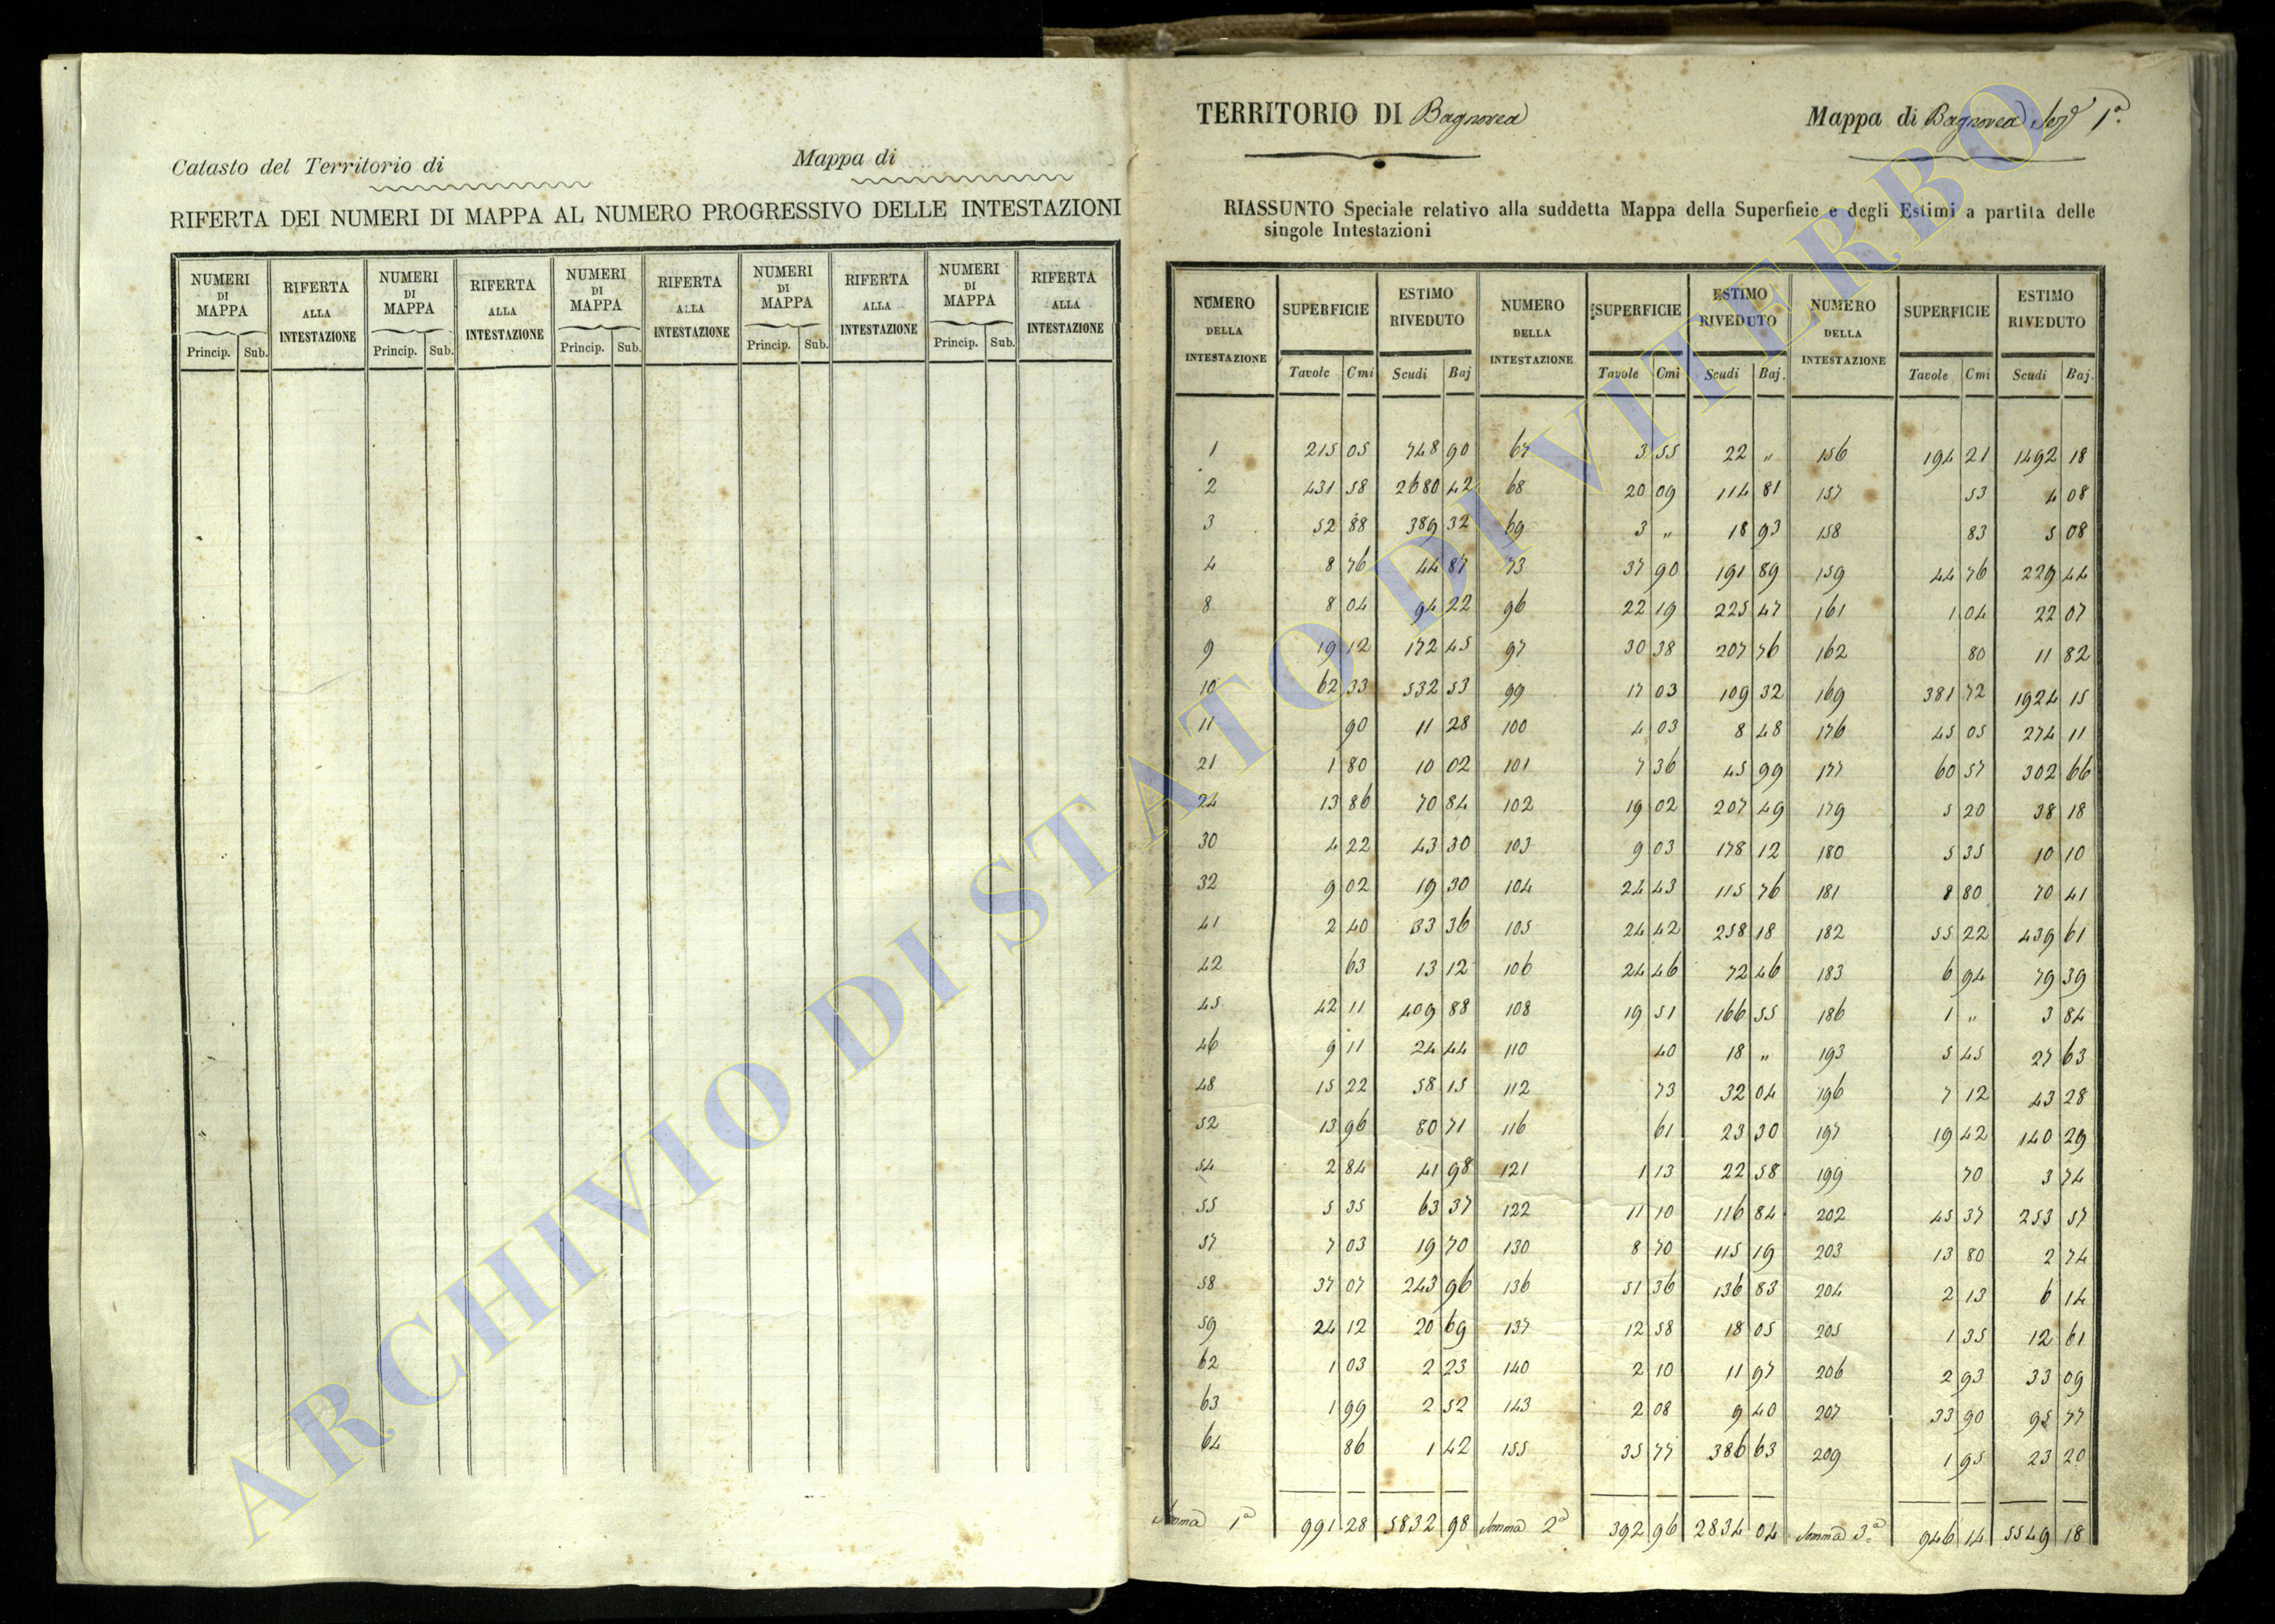 Catasto del Territorio di Mappa di
RIFERTA DEI NUMERI DI MAPPA AL NUMERO PROGRESSIVO DELLE INTESTAZIONI
NUMERI DI MAPPA RIFERTA ALLA INTESTAZIONE NUMERI DI MAPPA RIFERTA ALLA INTESTAZIONE NUMERI DI MAPPA RIFERTA ALLA INTESTAZIONE NUMERI DI MAPPA RIFERTA ALLA INTESTAZIONE NUMERI DI MAPPA RIFERTA ALLA INTESTAZIONE
Princip. Sub. Princip. Sub. Princip. Sub. Princip. Sub. Princip. Sub.
TERRITORIO DI Bagnorea Mappa di Bagnorea 1ª
RIASSUNTO Speciale relativo alla suddetta Mappa della Superficie e degli Estimi a partita delle
singole Intestazioni
NUMERO DELLA INTESTAZIONE SUPERFICIE ESTIMO RIVEDUTO NUMERO DELLA INTESTAZIONE SUPERFICIE ESTIMO RIVEDUTO NUMERO DELLA INTESTAZIONE SUPERFICIE ESTIMO RIVEDUTO
Tavole Cmi Scudi Baj Tavole Cmi Scudi Baj. Tavole Cmi Scudi Baj.
1 215 05 748 90 67 3 55 22 „ 156 194 21 1492 18
2 431 58 2680 42 68 20 09 114 81 157 53 4 08
3 52 88 389 32 69 3 „ 18 93 158 83 5 08
4 8 76 44 87 73 37 90 191 89 159 44 76 229 44
8 8 04 94 22 96 22 19 225 47 161 1 04 22 07
9 19 12 172 45 97 30 38 207 76 162 80 11 82
10 62 33 532 53 99 17 03 109 32 169 381 72 1924 15
11 90 11 28 100 4 03 8 48 176 45 05 274 11
21 1 80 10 02 101 7 36 45 99 177 60 57 302 66
24 13 86 70 84 102 19 02 207 49 179 5 20 38 18
30 4 22 43 30 103 9 03 178 12 180 5 35 10 10
32 9 02 19 30 104 24 43 115 76 181 8 80 70 41
41 2 40 33 36 105 24 42 258 18 182 55 22 439 61
42 63 13 12 106 24 46 72 46 183 6 94 79 39
45 42 11 409 88 108 19 51 166 55 186 1 „ 3 84
46 9 11 24 44 110 40 18 „ 193 5 45 27 63
48 15 22 58 15 112 73 32 04 196 7 12 43 28
52 13 96 80 71 116 61 23 30 197 19 42 140 29
54 2 84 41 98 121 1 13 22 58 199 70 3 74
55 5 35 63 37 122 11 10 116 84 202 45 37 253 57
57 7 03 19 70 130 8 70 115 19 203 13 80 2 74
58 37 07 243 96 136 51 36 136 83 204 2 13 6 14
59 24 12 20 69 137 12 58 18 05 205 1 35 12 61
62 1 03 2 23 140 2 10 11 97 206 2 93 33 09
63 1 99 2 52 143 2 08 9 40 207 33 90 95 77
64 86 1 42 155 35 77 386 63 209 1 95 23 20
Somma 1ª 991 28 5832 98 Somma 2ª 392 96 2834 04 Somma 3ª 946 14 5549 18
ARCHIVIO DI STATO DI VITERBO